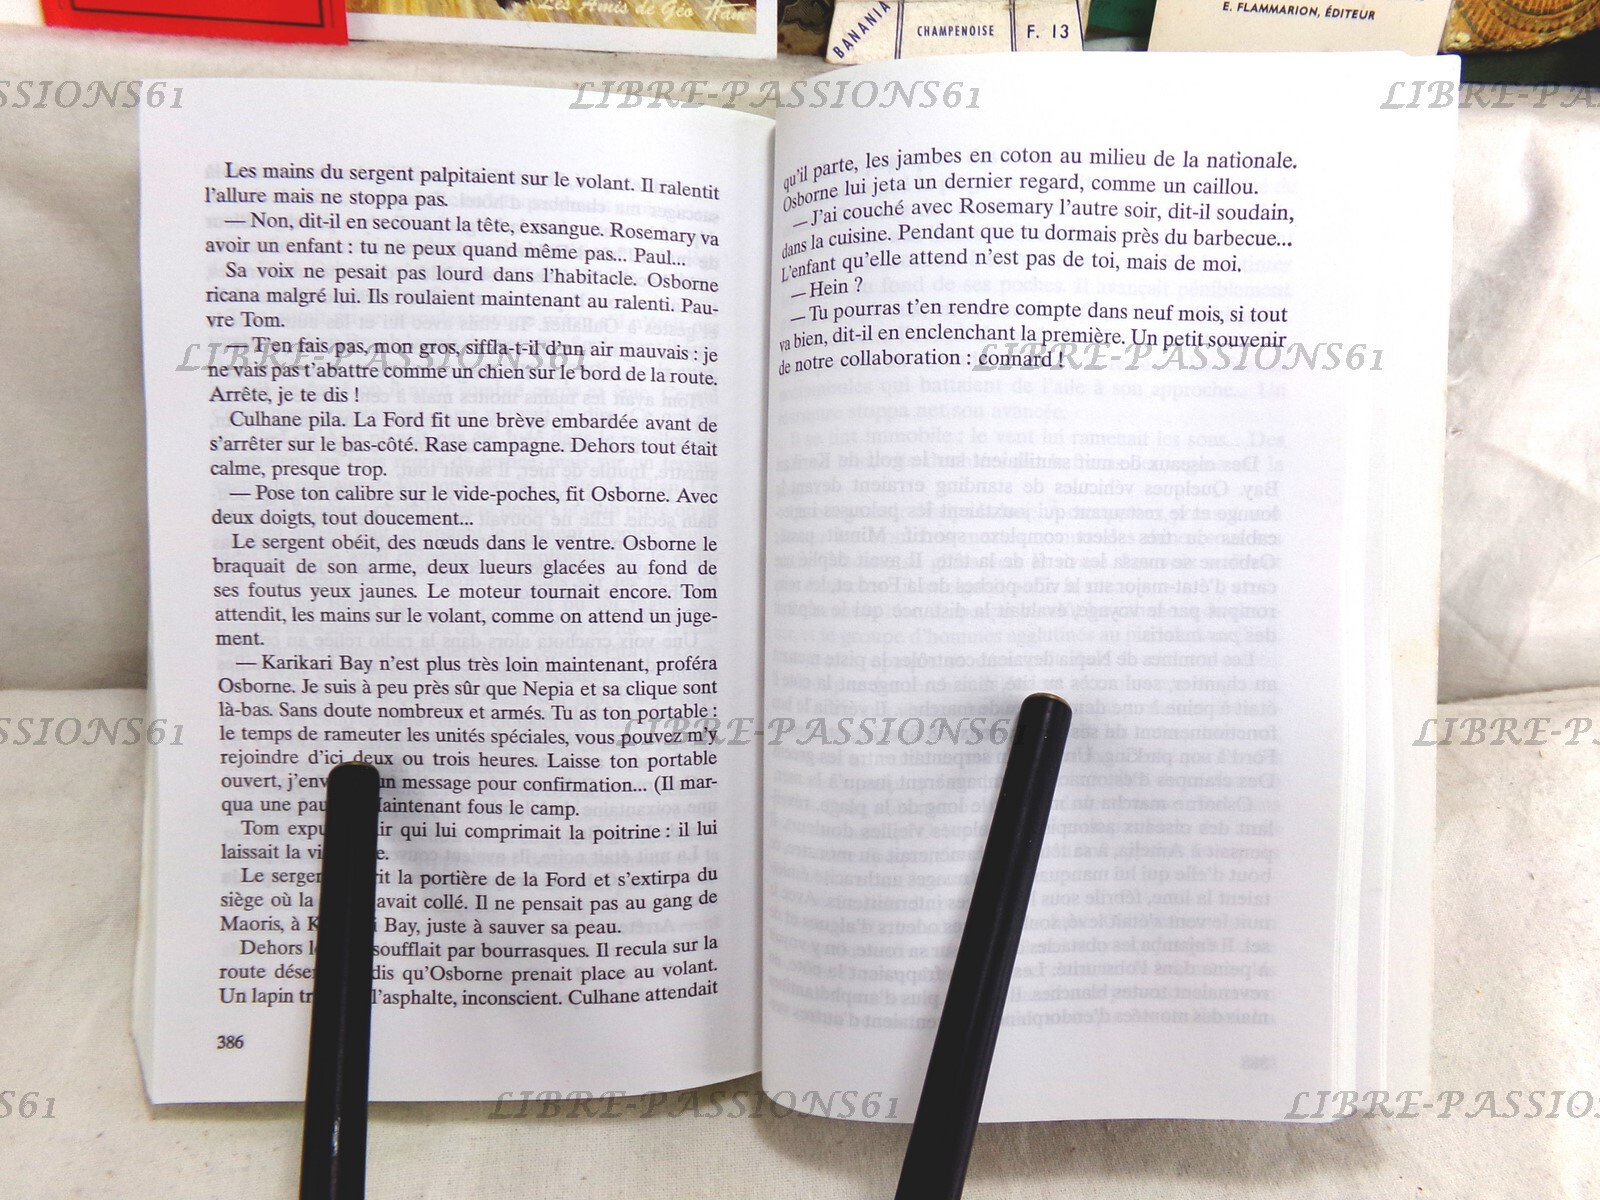 Les Amis de Géo Ham
BANANIA
CHAMPENOISE
F. 13
E. FLAMMARION, ÉDITEUR
LIBRE-PASSIONS61
Les mains du sergent palpitaient sur le volant. Il ralentit
l'allure mais ne stoppa pas.
— Non, dit-il en secouant la tête, exsangue. Rosemary va
avoir un enfant : tu ne peux quand même pas... Paul...
Sa voix ne pesait pas lourd dans l'habitacle. Osborne
ricana malgré lui. Ils roulaient maintenant au ralenti. Pau-
vre Tom.
— T'en fais pas, mon gros, siffla-t-il d'un air mauvais : je
ne vais pas t'abattre comme un chien sur le bord de la route.
Arrête, je te dis !
Culhane pila. La Ford fit une brève embardée avant de
s'arrêter sur le bas-côté. Rase campagne. Dehors tout était
calme, presque trop.
— Pose ton calibre sur le vide-poches, fit Osborne. Avec
deux doigts, tout doucement...
Le sergent obéit, des nœuds dans le ventre. Osborne le
braquait de son arme, deux lueurs glacées au fond de
ses foutus yeux jaunes. Le moteur tournait encore. Tom
attendit, les mains sur le volant, comme on attend un juge-
ment.
— Karikari Bay n'est plus très loin maintenant, proféra
Osborne. Je suis à peu près sûr que Nepia et sa clique sont
là-bas. Sans doute nombreux et armés. Tu as ton portable :
le temps de rameuter les unités spéciales, vous pouvez m'y
rejoindre d'ici deux ou trois heures. Laisse ton portable
ouvert, j'env un message pour confirmation... (Il mar-
qua une pau Maintenant fous le camp.
Tom expu ir qui lui comprimait la poitrine : il lui
laissait la vi e.
Le serger rit la portière de la Ford et s'extirpa du
siège où la avait collé. Il ne pensait pas au gang de
Maoris, à K i Bay, juste à sauver sa peau.
Dehors l soufflait par bourrasques. Il recula sur la
route déser dis qu'Osborne prenait place au volant.
Un lapin tr l'asphalte, inconscient. Culhane attendait
386
qu'il parte, les jambes en coton au milieu de la nationale.
Osborne lui jeta un dernier regard, comme un caillou.
— J'ai couché avec Rosemary l'autre soir, dit-il soudain,
dans la cuisine. Pendant que tu dormais près du barbecue...
L'enfant qu'elle attend n'est pas de toi, mais de moi.
— Hein ?
— Tu pourras t'en rendre compte dans neuf mois, si tout
va bien, dit-il en enclenchant la première. Un petit souvenir
de notre collaboration : connard !